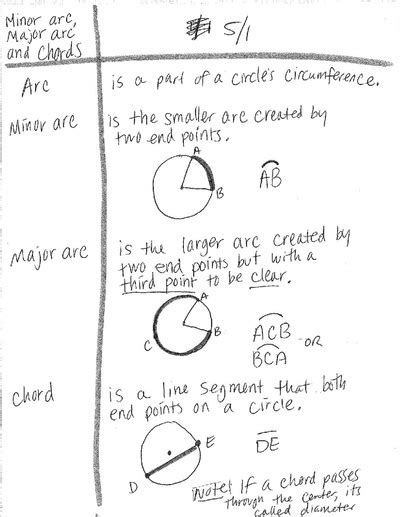 Minor arc,
Major arc
and Chords
5/1
Arc
is a part of a circle's circumference.
Minor arc
is the smaller arc created by
two end points.
A
B
AB
Major arc
is the larger arc created by
two end points but with a
third point to be clear.
A
B
C
ACB
OR
BCA
Chord
is a line segment that both
end points on a circle.
E
D
DE
Note! If a chord passes
through the center, its
called diameter